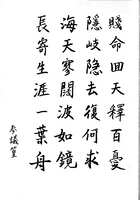 賤命回天釋百憂
隱岐隐去復何求
海天寥闊波如鏡
長寄生涯一葉舟
参議篁